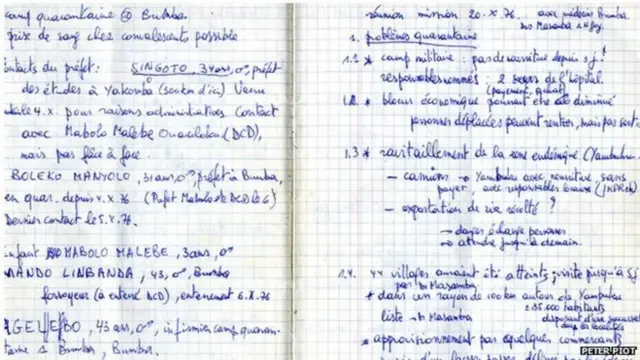 camp quarantaine @ Bumba
prise de sang chez convalescents possible
contacts du préfet:
SINGOTO, 34 ans, ♂, préfet
des études à Yakomba (300 km d'ici) Venu
le 4.X. pour raisons administratives. Contact
avec Mabolo Malebe (DCD),
mais pas face à face.
BOLEKO MANYOLO, 31 ans, ♂, préfet à Bumba,
en quar. depuis 4.X.76 (Préfet Mabolo DCD le 6)
Dernier contact le 5.X.76.
Enfant MABOLO MALEBE, 3 ans, ♂
MANDO LINBANDA, 43, ♂, Bumba
fossoyeur (a enterré DCD), enterrement 6.X.76
, 43 ans, ♂, infirmier camp quaran-
taine à Bumba, Bumba.
réunion mission 20.X.76. avec médecins Bumba.
Drs Masamba &
1. problèmes quarantaine
1.1 * camp militaire: pas de nourriture depuis 3 j!
responsables nommés: 2 soeurs de l'hôpital.
(payement, quid)
1.2. * blocus économique pourrait être diminué
personnes déplacées peuvent rentrer, mais pas sort.
1.3 * ravitaillement de la zone endémique (Yambuku
- camions → Yambuku avec nourriture sans
payer, avec responsables
- exportation de riz récolté?
→ danger échange personnes
→ attendre jusqu'à demain.
1.4. 44 villages auraient été atteints; visite jusqu'à 5 j
par Dr Masamba.
* dans un rayon de 100 km autour de Yambuku
± 35.000 habitants
liste → Dr Masamba
disposant d'une
dans les localités
* approvisionnement par quelques commerçants
PETER PIOT